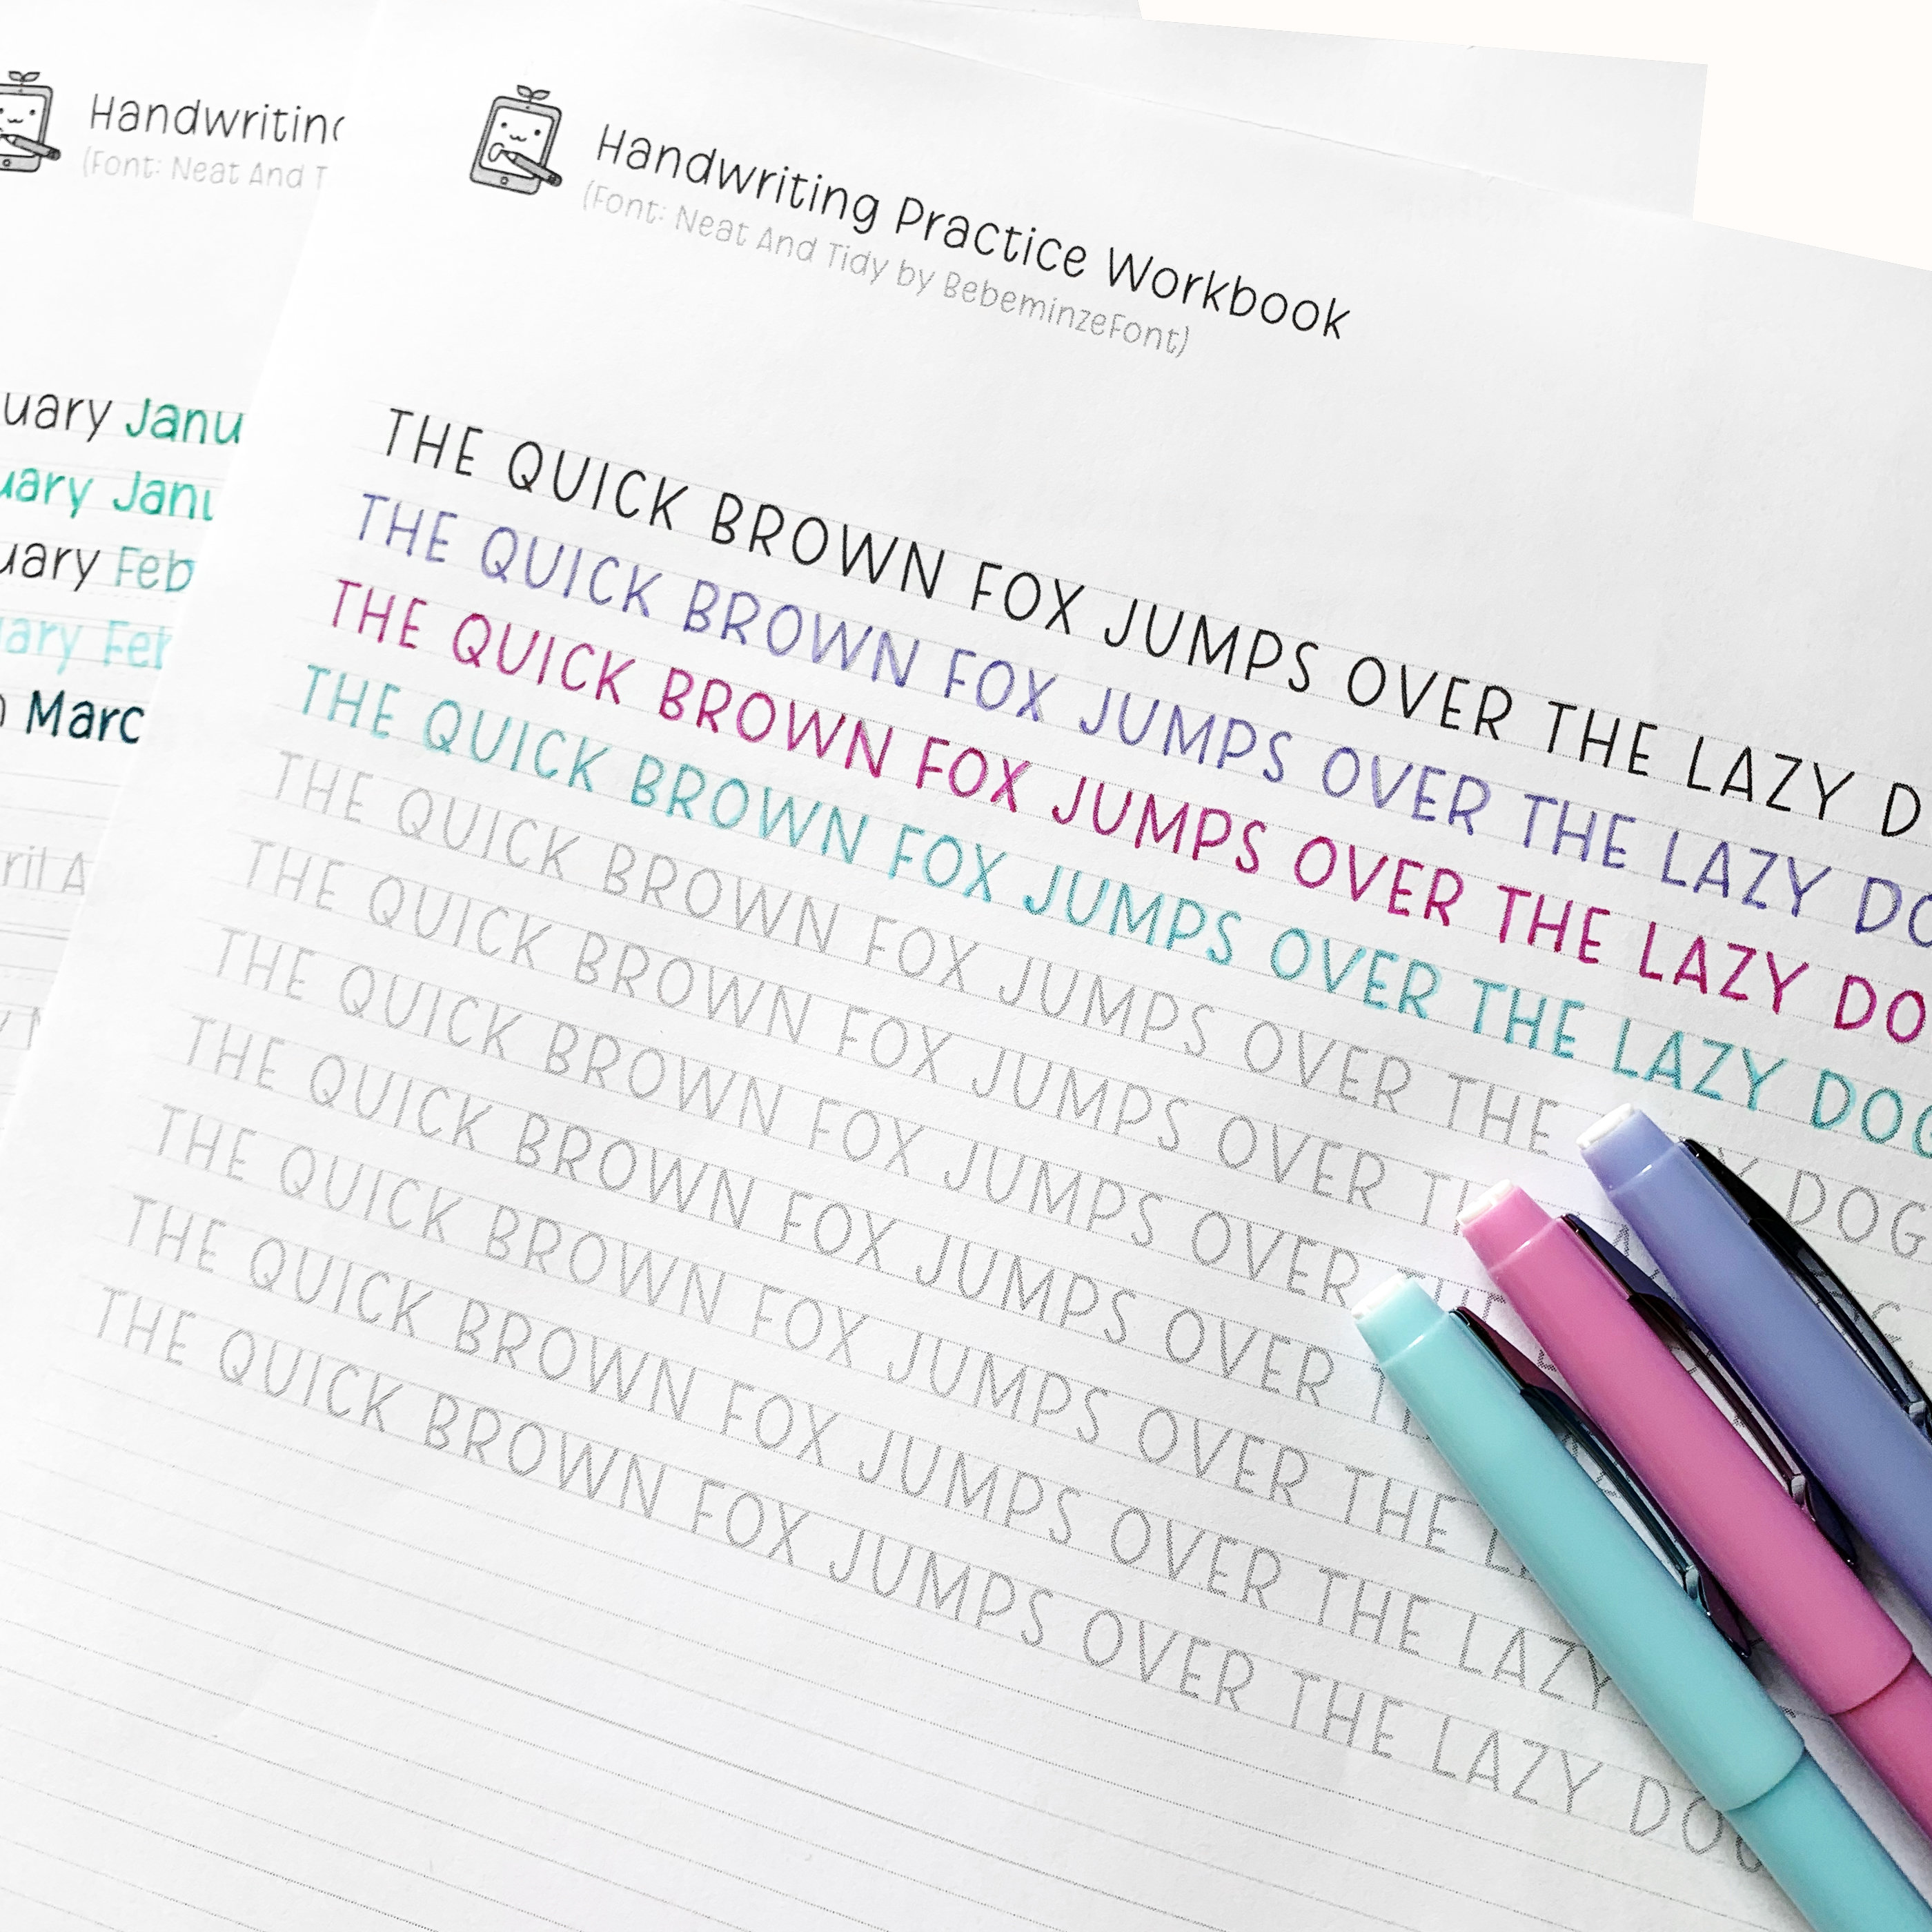 Handwritin
(Font: Neat And T
uary Janu
uary Janu
uary Feb
uary Feb
Marc
ril A
Handwriting Practice Workbook
(Font: Neat And Tidy by BebeminzeFont)
THE QUICK BROWN FOX JUMPS OVER THE LAZY D
THE QUICK BROWN FOX JUMPS OVER THE LAZY DO
THE QUICK BROWN FOX JUMPS OVER THE LAZY DO
THE QUICK BROWN FOX JUMPS OVER THE LAZY DOG
THE QUICK BROWN FOX JUMPS OVER THE Y DOG
THE QUICK BROWN FOX JUMPS OVER T
THE QUICK BROWN FOX JUMPS OVER THE
THE QUICK BROWN FOX JUMPS OVER T
THE QUICK BROWN FOX JUMPS OVER THE L
THE QUICK BROWN FOX JUMPS OVER THE LAZY
THE QUICK BROWN FOX JUMPS OVER THE LAZY DOG